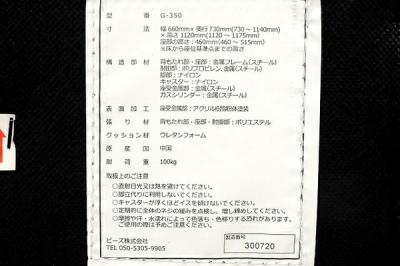 型番 G-350
寸法 幅 660mm× 奥行 730mm(730 ~ 1140mm)
× 高さ 1120mm(1120 ~ 1175mm)
座部の高さ : 460mm(460 ~ 515mm)
※床から座位基準点までの高さ
構造部材 背もたれ部・座部 : 金属フレーム(スチール)
肘部 : ポリプロピレン、金属(スチール)
脚部 : ナイロン
キャスター : ナイロン
座受金属部 : 金属(スチール)
ガスシリンダー : 金属(スチール)
表面加工 座受金属部 : アクリル樹脂粉体塗装
張り材 背もたれ部・座部・肘部 : ポリエステル
クッション材 ウレタンフォーム
原産国 中国
耐荷重 100kg
取扱上のご注意
○直射日光又は熱を避けてください。
○脚立代りに利用しないでください。
○キャスターが浮くほどイスを傾けないでください。
○定期的に全体のネジの緩みを点検し、増し締めしてください。
○摩擦や汗・水濡れによって色落ち・色移りする恐れがあります。
ご使用の際は予めご了承ください。
ビーズ株式会社
TEL 050-5305-9905
製造番号
300720